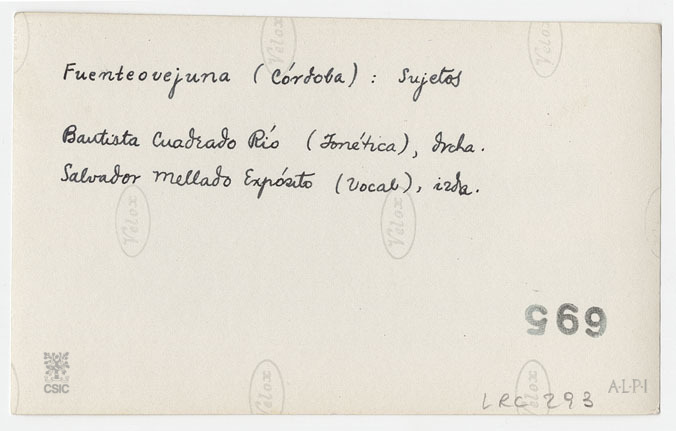 Velox
Velox
Fuenteovejuna (Córdoba) : Sujetos
Bautista Cuadrado Río (Fonética), drcha.
Salvador Mellado Expósito (Vocal), izda.
Velox
Velox
695
CSIC
Velox
Velox
A·L·P·I
LRC 293